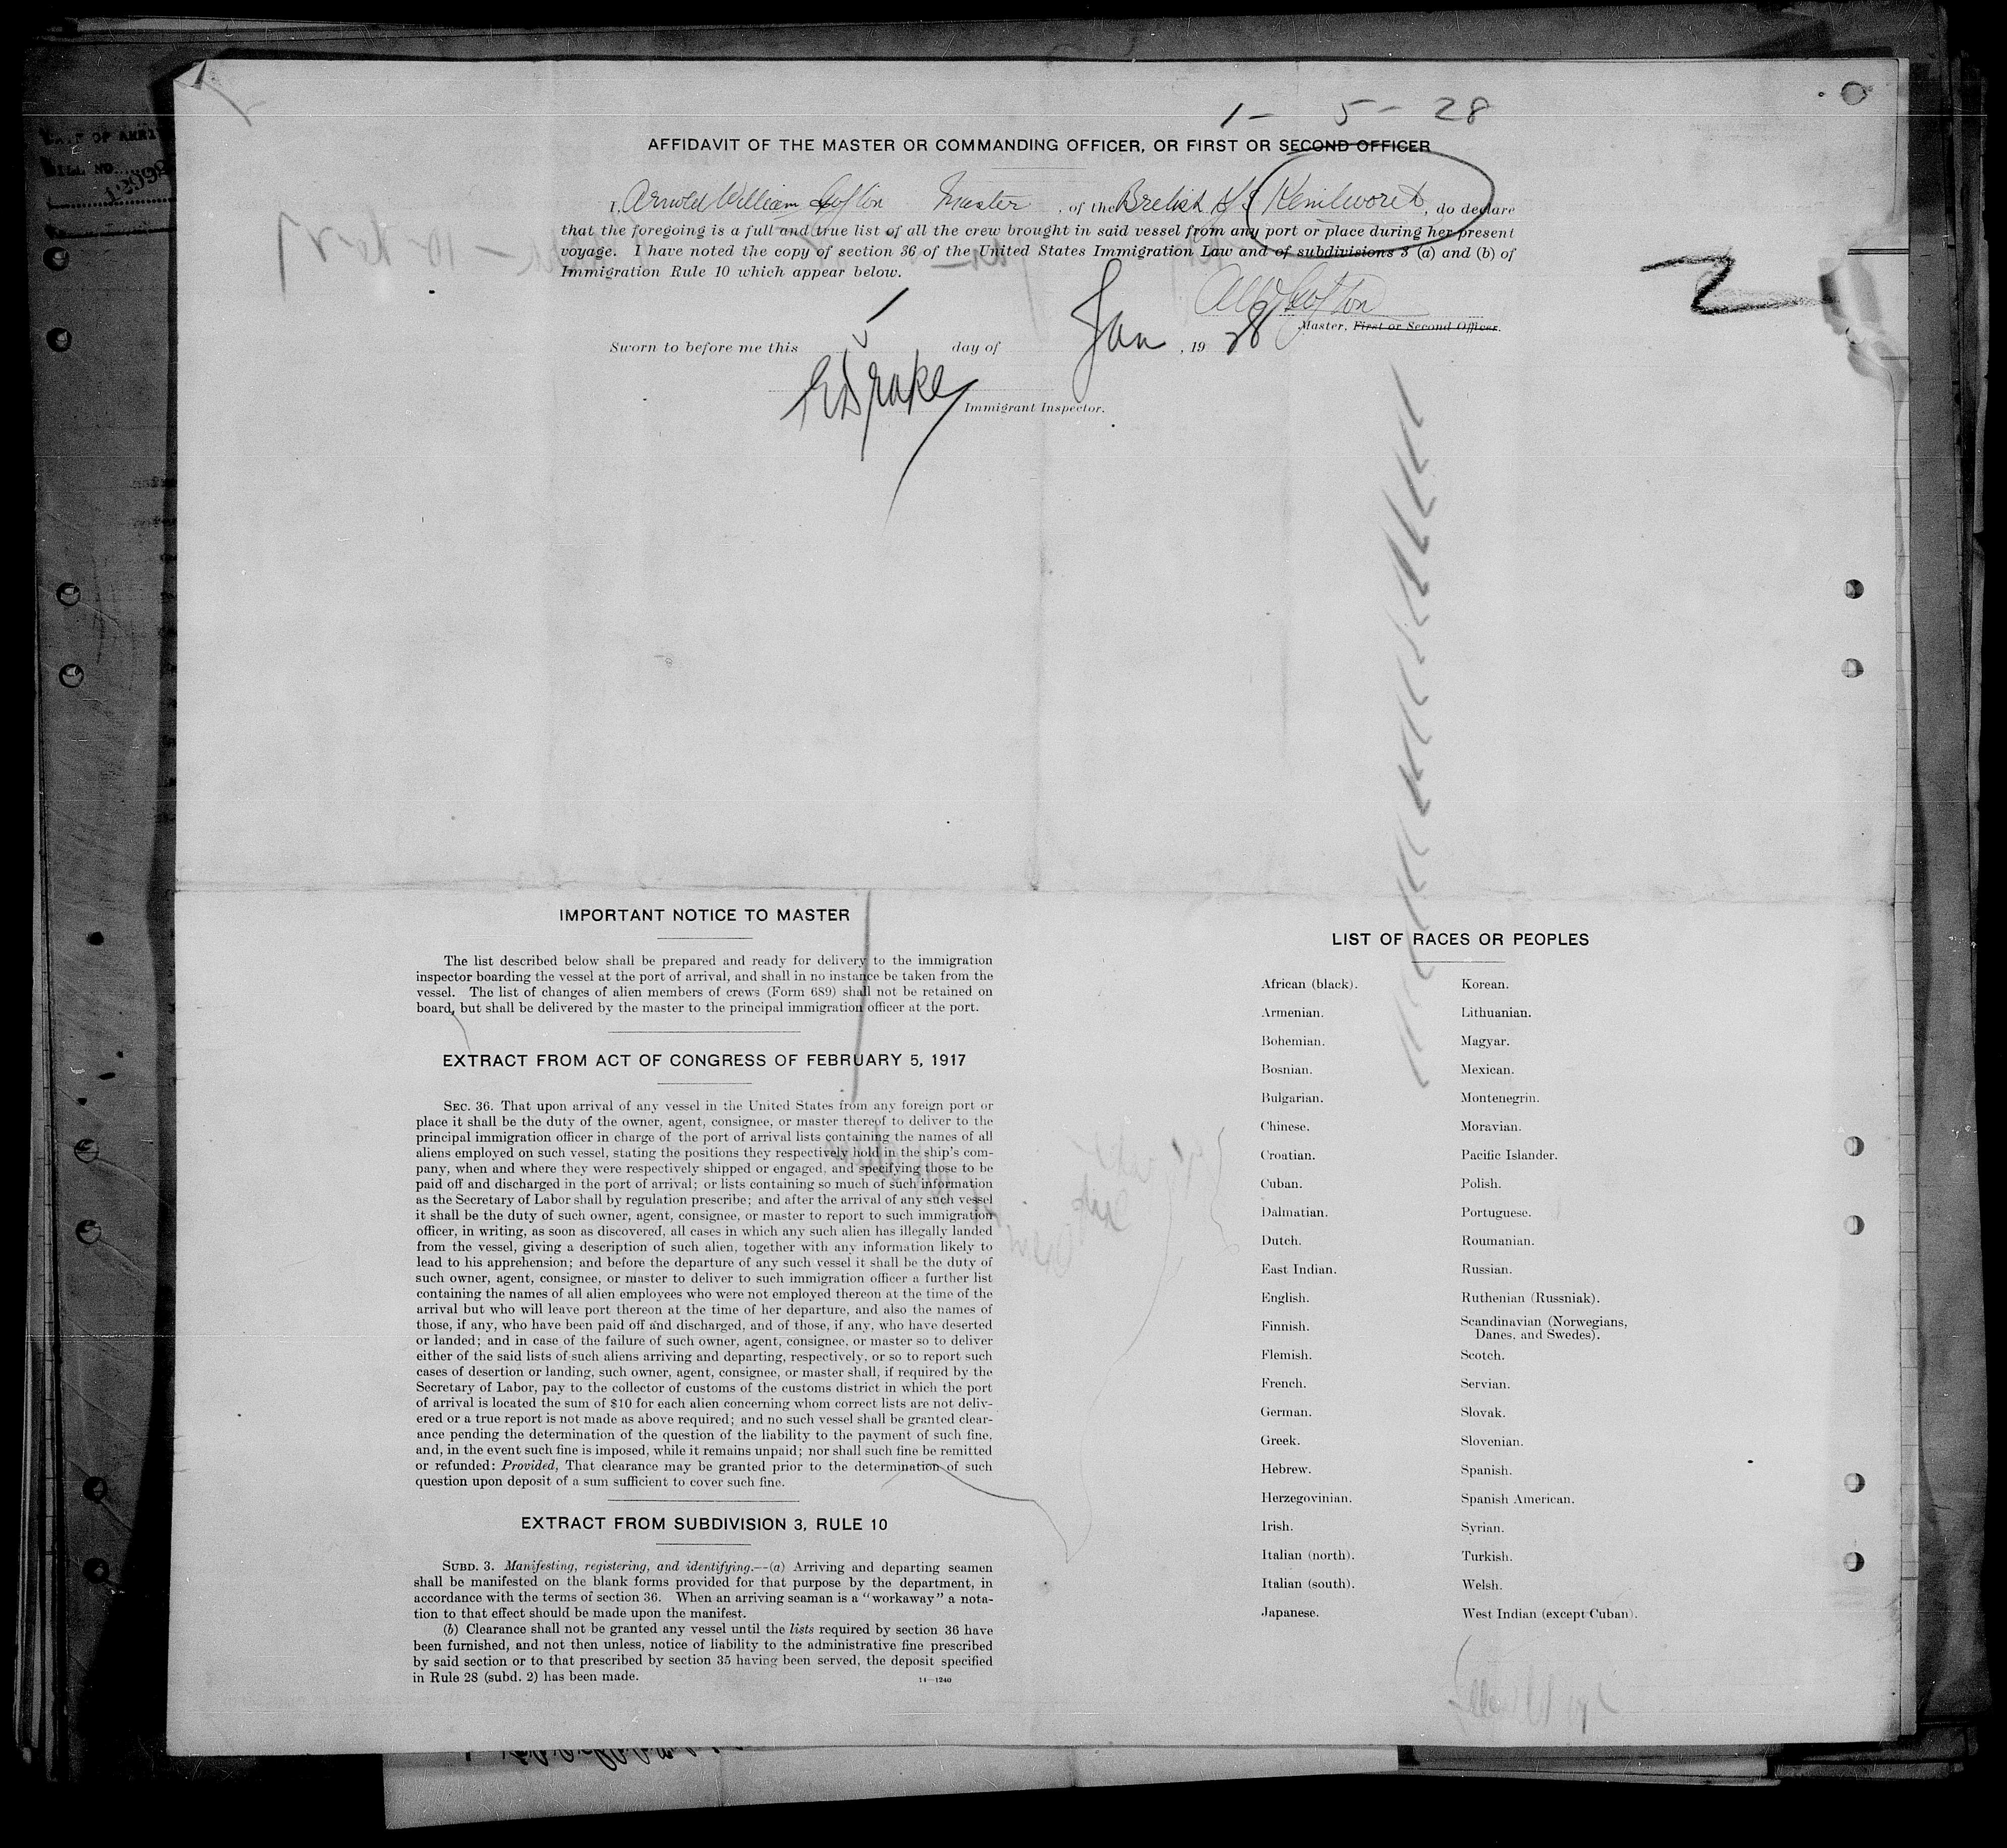 1 - 5 - 28
AFFIDAVIT OF THE MASTER OR COMMANDING OFFICER, OR FIRST OR SECOND OFFICER
I, Arnold William Master, of the British S/S Kenilworth, do declare
that the foregoing is a full and true list of all the crew brought in said vessel from any port or place during her present
voyage. I have noted the copy of section 36 of the United States Immigration Law and of subdivisions 3 (a) and (b) of
Immigration Rule 10 which appear below.
2
Master, First or Second Officer.
Sworn to before me this 5 day of Jan, 19 28
Drake
Immigrant Inspector.
IMPORTANT NOTICE TO MASTER
The list described below shall be prepared and ready for delivery to the immigration
inspector boarding the vessel at the port of arrival, and shall in no instance be taken from the
vessel. The list of changes of alien members of crews (Form 689) shall not be retained on
board, but shall be delivered by the master to the principal immigration officer at the port.
EXTRACT FROM ACT OF CONGRESS OF FEBRUARY 5, 1917
SEC. 36. That upon arrival of any vessel in the United States from any foreign port or
place it shall be the duty of the owner, agent, consignee, or master thereof to deliver to the
principal immigration officer in charge of the port of arrival lists containing the names of all
aliens employed on such vessel, stating the positions they respectively hold in the ship's com-
pany, when and where they were respectively shipped or engaged, and specifying those to be
paid off and discharged in the port of arrival; or lists containing so much of such information
as the Secretary of Labor shall by regulation prescribe; and after the arrival of any such vessel
it shall be the duty of such owner, agent, consignee, or master to report to such immigration
officer, in writing, as soon as discovered, all cases in which any such alien has illegally landed
from the vessel, giving a description of such alien, together with any information likely to
lead to his apprehension; and before the departure of any such vessel it shall be the duty of
such owner, agent, consignee, or master to deliver to such immigration officer a further list
containing the names of all alien employees who were not employed thereon at the time of the
arrival but who will leave port thereon at the time of her departure, and also the names of
those, if any, who have been paid off and discharged, and of those, if any, who have deserted
or landed; and in case of the failure of such owner, agent, consignee, or master so to deliver
either of the said lists of such aliens arriving and departing, respectively, or so to report such
cases of desertion or landing, such owner, agent, consignee, or master shall, if required by the
Secretary of Labor, pay to the collector of customs of the customs district in which the port
of arrival is located the sum of $10 for each alien concerning whom correct lists are not deliv-
ered or a true report is not made as above required; and no such vessel shall be granted clear-
ance pending the determination of the question of the liability to the payment of such fine,
and, in the event such fine is imposed, while it remains unpaid; nor shall such fine be remitted
or refunded: Provided, That clearance may be granted prior to the determination of such
question upon deposit of a sum sufficient to cover such fine.
EXTRACT FROM SUBDIVISION 3, RULE 10
SUBD. 3. Manifesting, registering, and identifying.--(a) Arriving and departing seamen
shall be manifested on the blank forms provided for that purpose by the department, in
accordance with the terms of section 36. When an arriving seaman is a "workaway" a nota-
tion to that effect should be made upon the manifest.
(b) Clearance shall not be granted any vessel until the lists required by section 36 have
been furnished, and not then unless, notice of liability to the administrative fine prescribed
by said section or to that prescribed by section 35 having been served, the deposit specified
in Rule 28 (subd. 2) has been made.
14-1240
LIST OF RACES OR PEOPLES
African (black).
Armenian.
Bohemian.
Bosnian.
Bulgarian.
Chinese.
Croatian.
Cuban.
Dalmatian.
Dutch.
East Indian.
English.
Finnish.
Flemish.
French.
German.
Greek.
Hebrew.
Herzegovinian.
Irish.
Italian (north).
Italian (south).
Japanese.
Korean.
Lithuanian.
Magyar.
Mexican.
Montenegrin.
Moravian.
Pacific Islander.
Polish.
Portuguese.
Roumanian.
Russian.
Ruthenian (Russniak).
Scandinavian (Norwegians,
Danes, and Swedes).
Scotch.
Servian.
Slovak.
Slovenian.
Spanish.
Spanish American.
Syrian.
Turkish.
Welsh.
West Indian (except Cuban).